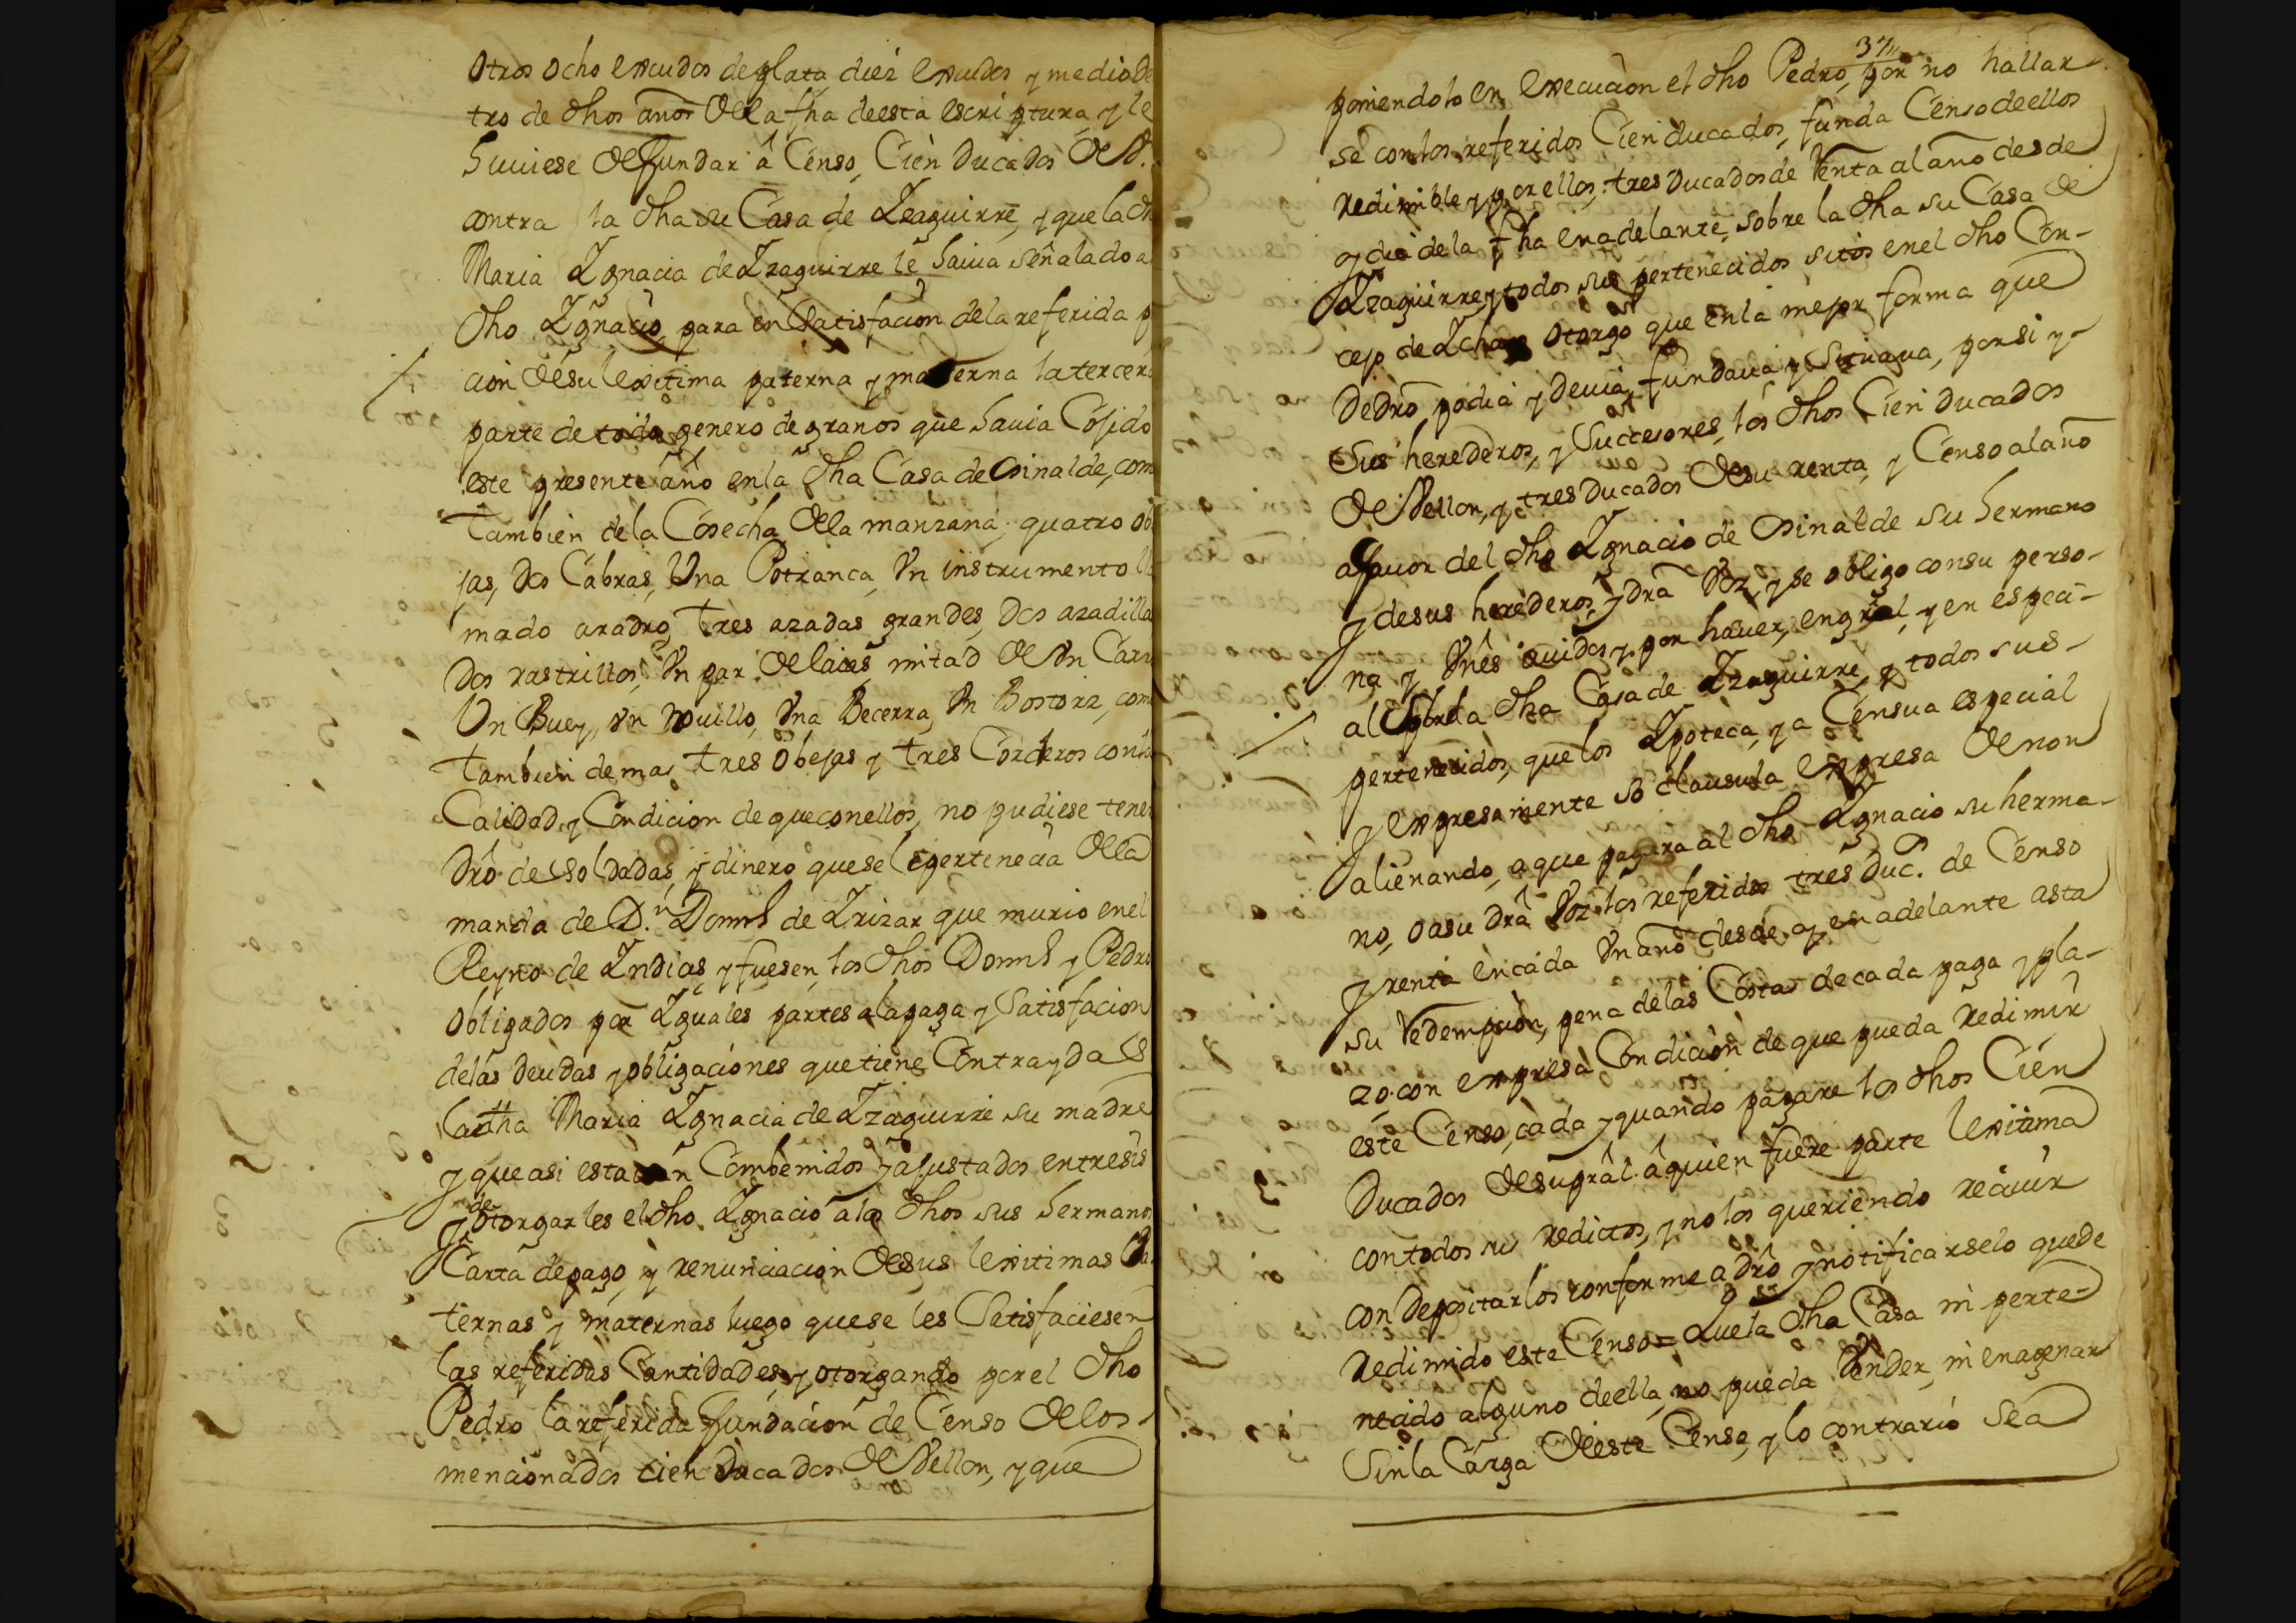 Otros ocho escudos de plata diez escudos y medio de
tro de dhos años de la fha de esta escriptura, y le
huuiese de fundar â Censo, Cien Ducados de V.
contra la dha su Casa de Yzaguirre, y que la dh
Maria Ygnacia de Yzaguirre le hauia señalado a
dho Ygnacio, para en Satisfacion de la referida p
cion de su lexitima paterna y materna la tercera
parte de todo genero de granos que hauia Cojido
este presente año en la dha Casa de Osinalde, com
tambien de la Cosecha de la manzana, quatro obe
jas, dos Cabras, Una Potranca, Vn instrumento lla
mado aradro, tres azadas grandes, dos azadilla
dos rastrillos, Vn par de laias, mitad de Vn Carr
Un Buey, Vn Nouillo, Vna Becerra, Vn Bostoriz, com
tambien de mas, tres obejas y tres Corderos con la
Calidad, y Condicion de que con ellos, no pudiese tener
dro de soldadas, y dinero que se le pertenecia de la
manda de D.n Domns de Yrizar que murio en el
Reyno de Yndias, y fuesen los dhos Domns y Pedro
obligados por Yguales partes a la paga y Satisfacion
de las deudas y obligaciones que tiene Contraydas
la dha Maria Ygnacia de Yzaguirre su madre
y que asi estaban Combenidos y ajustados entre sis
de
y otorgarles el dho Ygnacio a los dhos sus hermanos
Carta de pago, y renunciacion de sus lexitimas Pa
ternas y maternas luego que se les Satisfaciesen
las referidas Cantidades, y otorgando por el dho
Pedro la referida fundacion de Censo de los
mencionados cien Ducados de Vellon, y que
37
poniendolo en execucion el dho Pedro, por no hallar
se con los referidos Cien ducados, funda Censo de ellos
redimible y por ellos, tres Ducados de renta al año desde
oy dia de la fha en adelante, sobre la dha su Casa de
Yzaguirre, y todos sus pertenecidos sitos en el dho Con-
cejo de Ychaso otorgo que en la mejor forma que
Pedro podia y deuia, fundaua y Situaua, por si y
sus herederos, y Succesores, los dhos Cien Ducados
de Vellon, y tres Ducados de su renta, y Censo al año
a fauor del dho Ygnacio de Osinalde su hermano
y de sus herederos, y dra Voz, y se obligo con su perso-
na y Vnes auidos y por hauer, en gral, y en especi-
al Sobre la dha Casa de Yzaguirre, y todos sus
pertenecidos, que los Ypoteca, y a Censua especial
y expresamente so clausula expresa de non
alienando, a que pagara al dho Ygnacio su herma-
no, o a su dra Voz los referidos tres Duc.s de Censo
y renta en cada Vn año desde oy en adelante asta
su redempcion, pena de las Costas de cada paga y pla-
zo. con expresa Condicion de que pueda redimir
este Censo, cada y quando pagare los dhos Cien
Ducados de su pral. â quien fuere parte lexitima
con todos sus redictos, y no los queriendo reciuir
con depositarlos conforme a dro y notificarselo quede
redimido este Censo = Que la dha Casa ni perte-
necido alguno de ella, no pueda Vender, ni enagenar
Sin la Carga de este Censo, y lo contrario Sea